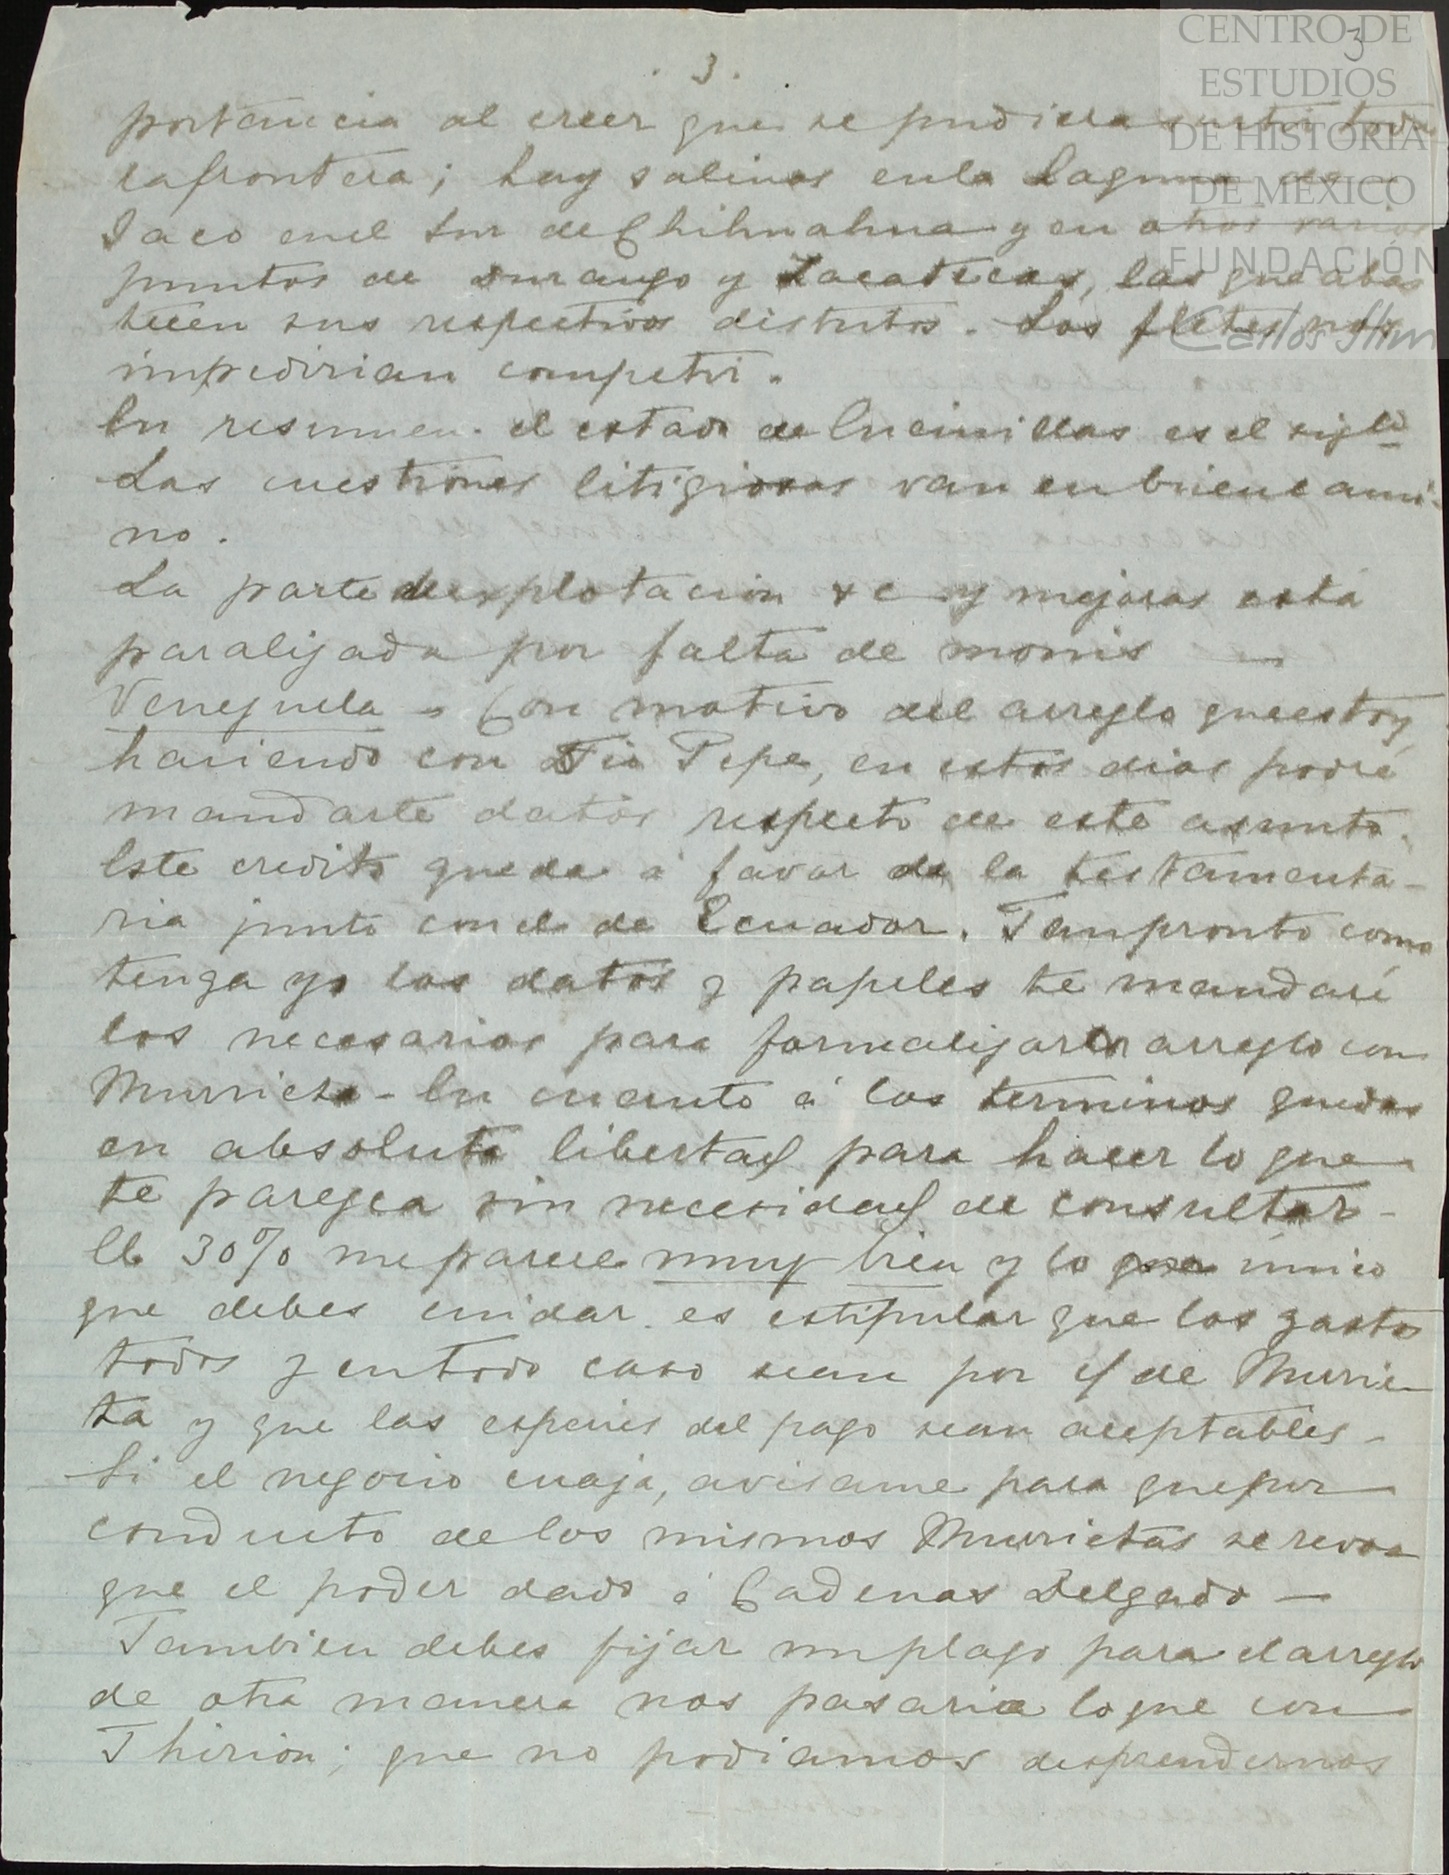 CENTRO DE
ESTUDIOS
DE HISTORIA
DE MÉXICO
FUNDACIÓN
Carlos Slim
3
. 3 .
portancia al creer que se pudiera surtir toda
la frontera; hay salinas en la Laguna de
Jaco en el Sur de Chihuahua y en otros varios
puntos de Durango y Zacatecas, las que abas
tecen sus respectivos distritos. Los fletes nos
impedirian competir.
En resumen el estado de Encinillas es el sigte
Las cuestiones litigiosas van en buen cami-
no.
La parte de explotacion &c y mejoras está
paralizada por falta de monis —
Venezuela - Con motivo del arreglo que estoy
haciendo con Tio Pepe, en estos dias podré
mandarte datos respecto de este asunto.
Este credito queda á favor de la testamenta-
ria junto con el de Ecuador. Tan pronto como
tenga yo los datos y papeles te mandaré
los necesarios para formalizar arreglo con
Murrieta - En cuanto á los terminos quedas
en absoluta libertad para hacer lo que
te parezca sin necesidad de consultar -
El 30% me parece muy bien y lo que único
que debes cuidar es estipular que los gastos
todos y en todo caso sean por cta de Murrie-
ta y que las especies del pago sean aceptables -
Si el negocio cuaja, avisame para que por
conducto de los mismos Murrietas se revo-
que el poder dado á Cadenas Delgado —
Tambien debes fijar un plazo para el arreglo
de otra manera nos pasaria lo que con
Thirion; que no podiamos desprendernos